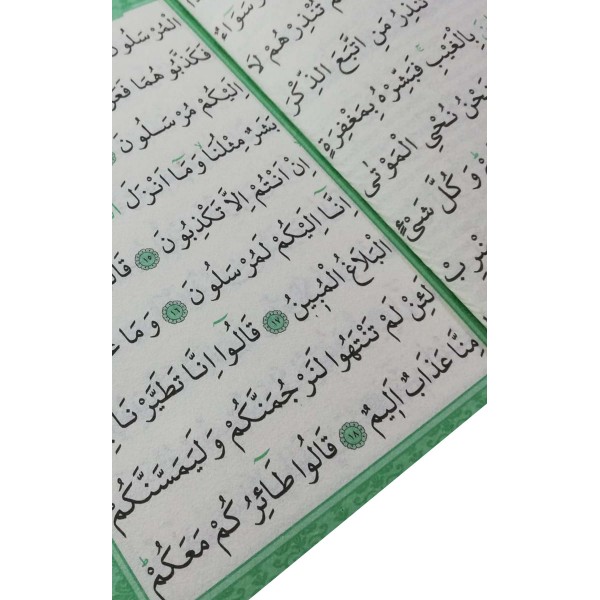 سَوَٓاءٌ
تُنْذِرْهُمْ لَا
تُنْذِرُ مَنِ اتَّبَعَ الذِّكْرَ
بِالْغَيْبِ فَبَشِّرْهُ بِمَغْفِرَةٍ
نُحْيِ الْمَوْتٰى
وَكُلَّ شَيْءٍ
الْمُرْسَلُونَ
فَكَذَّبُوهُمَا
اِلَيْكُمْ مُرْسَلُونَ
بَشَرٌ مِثْلُنَا وَمَٓا اَنْزَلَ
اِنْ اَنْتُمْ اِلَّا تَكْذِبُونَ ١٥
اِنَّٓا اِلَيْكُمْ لَمُرْسَلُونَ ١٦ وَمَا
الْبَلَاغُ الْمُبِينُ ١٧ قَالُٓوا اِنَّا تَطَيَّرْنَا
لَئِنْ لَمْ تَنْتَهُوا لَنَرْجُمَنَّكُمْ وَلَيَمَسَّنَّكُمْ
مِنَّا عَذَابٌ اَلِيمٌ ١٨ قَالُوا طَٓائِرُكُمْ مَعَكُمْ